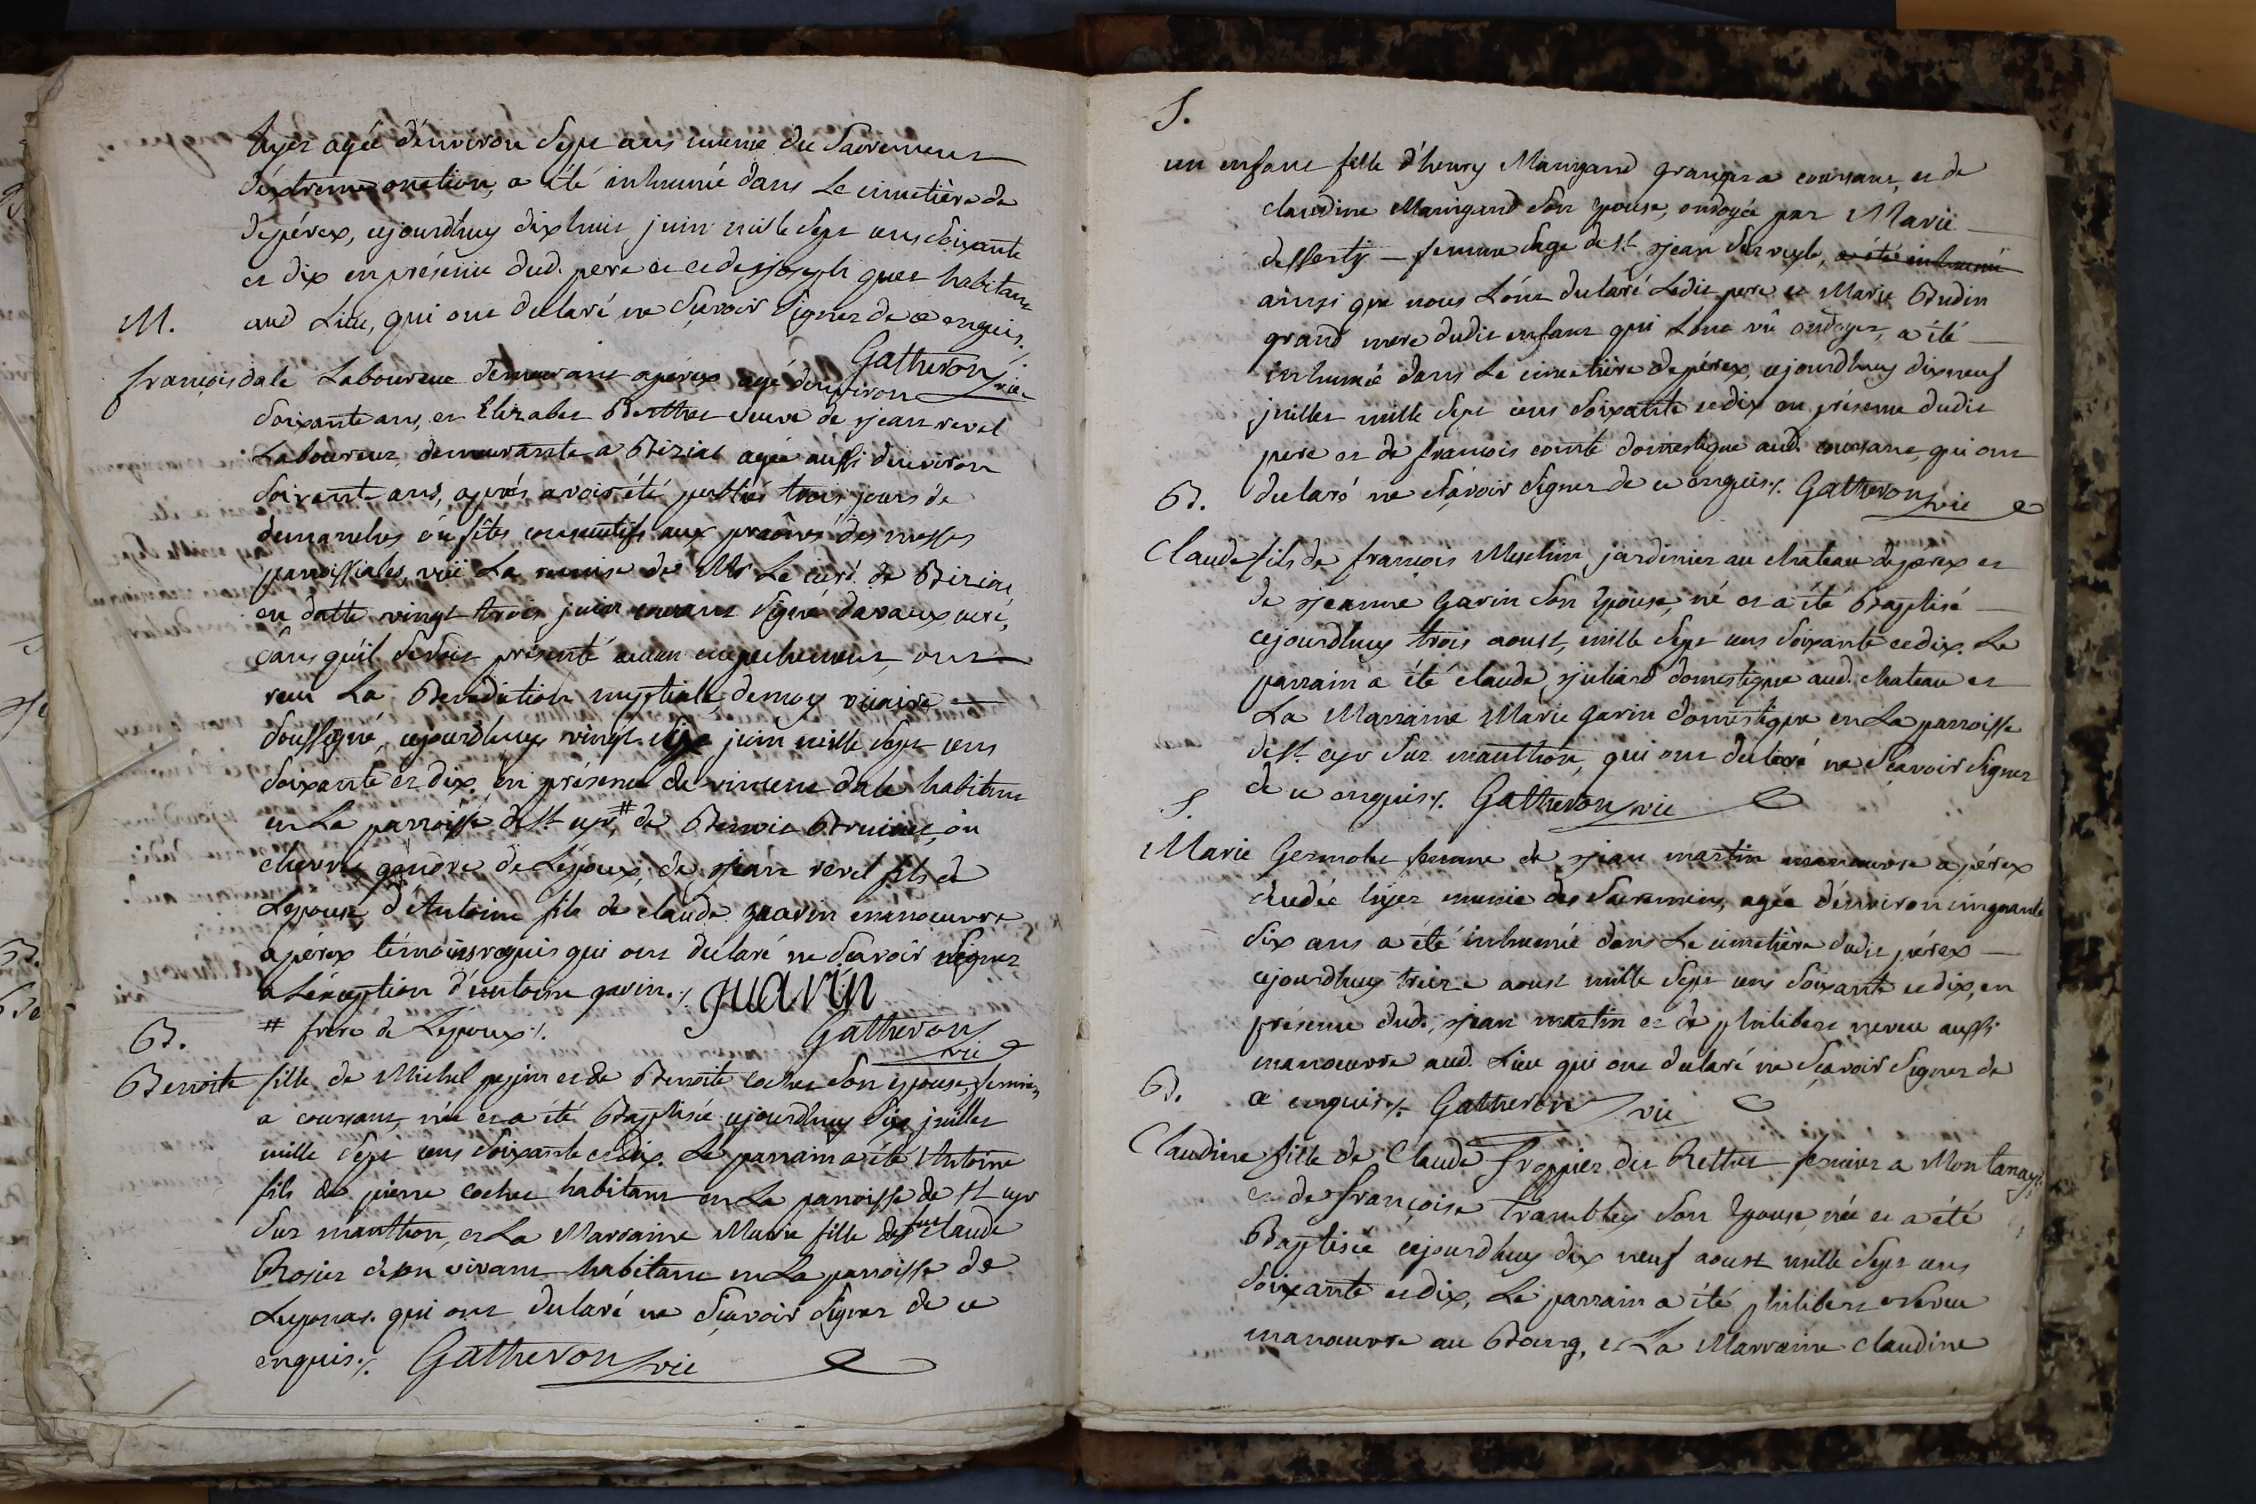 hyer agée d'environ sept ans munie du Sacrement
d'extreme onction, a été inhumée dans Le cimetière de
de pérex, cejourdhuy dix huit juin mille sept cens soixante
et dix en présence dud. pere et de joseph guet habitant
aud Lieu, qui ont declaré ne sçavoir signer de ce enquis./.
Gatheron vic
M.
françois dale Laboureur demeurant a pérex agé d'environ
soixante ans, et Elizabet Berthet veuve de jean revel
Laboureur, demeurante a Biziat agée aussi d'environ
soixante ans, aprés avoir été publiés trois jours de
dimanches ou fêtes consecutifs aux prônes des messes
parroissiales, vüe La remise de Mr Le curé de Biziat
en datte vingt trois juin courant signé davaux curé,
sans qu'il se soit présenté aucun empechement, ont
reçu La Benediction nuptiale de moy vicaire
soussigné, cejourdhuy vingt six juin mille sept cens
soixante et dix, en présence de vincent dale habitant
en La parroisse de St cyr, # de Benoit Bruinet, ou
chevre gendre de L'epoux, de jean revel fils de
Lepouse, d'Antoine fils de claude guavin manoeuvre
a pérex témoins requis qui ont declaré ne sçavoir signer
a Léxception d'antoine gavin./. Juavin
# frere de L'epoux /.
Gatheron vic
B.
Benoite fille de Michel pepin et de Benoite cochet son epouse, fermier
a coursant, née et a été Baptisée cejourdhuy six juillet
mille sept cens soixante et dix. Le parrain a été Antoine
fils de pierre cochet habitant en La parroisse de St cyr
sur manthon, et La Marraine Marie fille de feu claude
Rosier de son vivant habitant en La parroisse de
Luponas. qui ont declaré ne sçavoir signer de ce
enquis./. Gatheron vic
S.
un enfant fille d'henry Maingand granger a coursant, et de
claudine Maingand son epouse, ondoyée par Marie
desserty femme sage de St jean sur veyle, a été inhumée
ainsi que nous L'ont declaré Ledit pere et Marie Budin
grand mere dudit enfant qui L'ont vû ondoyer, a été
inhumée dans Le cimetière de pérex, cejourdhuy dix neuf
juillet mille sept cens soixante et dix en présence dudit
pere et de françois comte domestique aud. coursant, qui ont
declaré ne sçavoir signer de ce enquis./. Gatheron vic
B.
Claude fils de françois Meschin jardinier au chateau de pérex et
de jeanne Gavin son epouse, né et a été Baptisé
cejourdhuy trois aoust, mille sept cens soixante et dix. Le
parrain a été claude juliard domestique aud. chateau et
La Marraine Marie gavin domestique en La parroisse
de St. cyr sur manthon, qui ont declaré ne sçavoir signer
de ce enquis./. Gatheron vic
S.
Marie Germolet femme de jean martin manoeuvre a pérex
decedée hyer munie des Sacremens, agée d'environ cinquante
six ans a été inhumée dans Le cimetière dudit pérex
cejourdhuy treize aoust mille sept cens soixante et dix, en
présence dud. jean martin et de philibert neveu aussi
manoeuvre aud. Lieu qui ont declaré ne sçavoir signer de
ce enquis./. Gatheron vic
B.
Claudine fille de Claude froppier dit Rettet fermier a Montanay,
et de françoise Trambley son epouse, née et a été
Baptisée cejourdhuy dix neuf aoust mille sept cens
soixante et dix, Le parrain a été philibert neveu
manoeuvre au Bourg, et La Marraine claudine